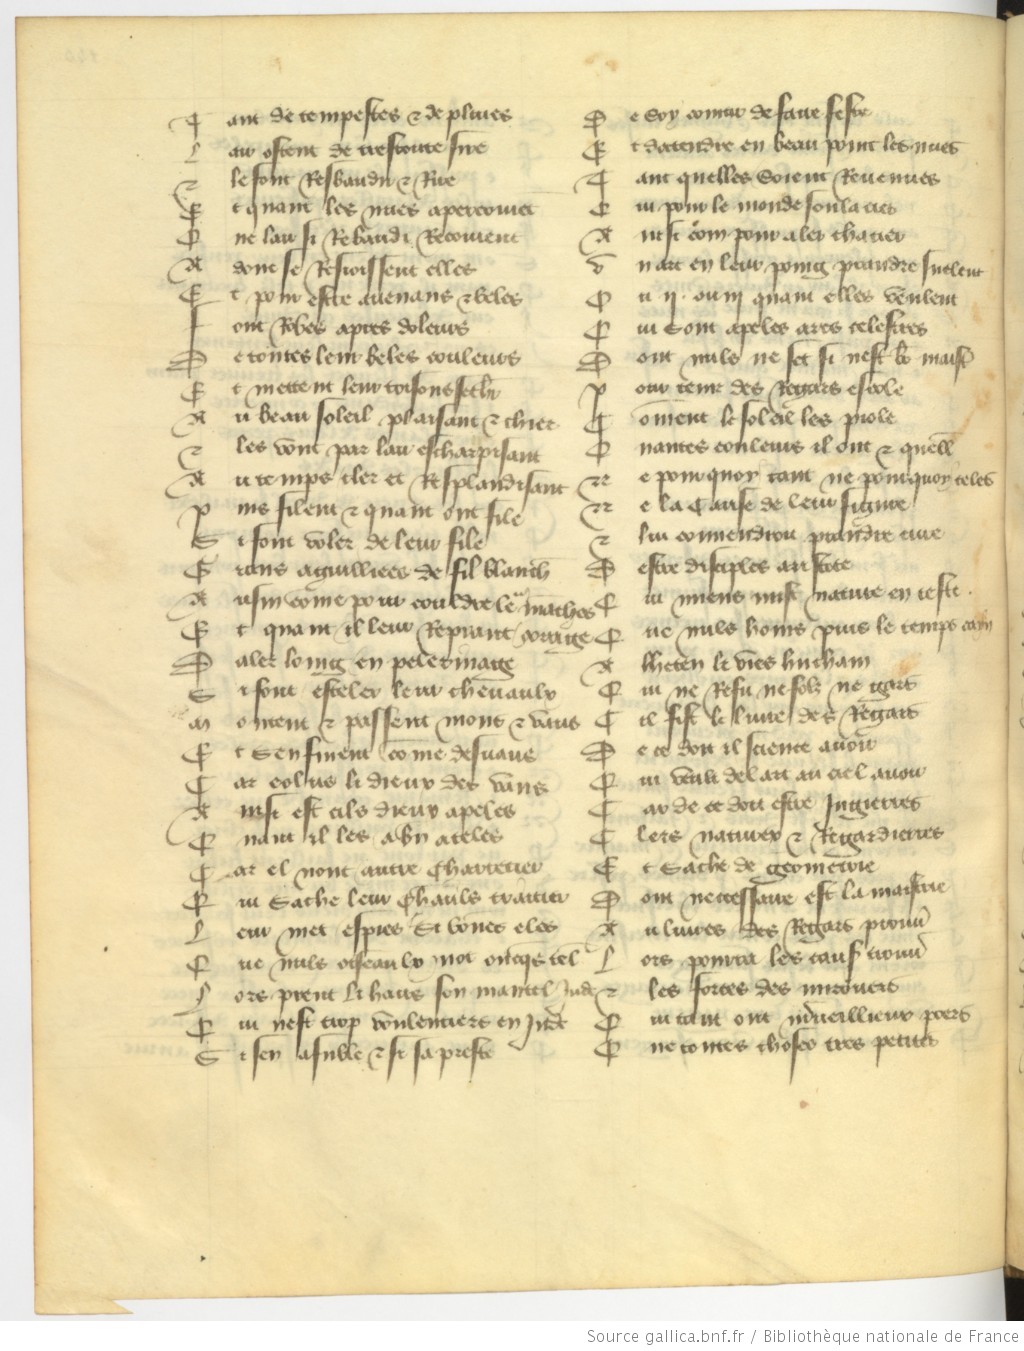 T ant de tempestes & de pluies
L air ostent de trestoute s ire
E les font Resbaudir & Rire
E t quant les nues apercoivent
Q ue lair si Rebaudi Recoivent
A dont se Resioissent elles
E t pour estre avenans & beles
F ont Robes apres doleurs
D e toutes leur beles couleurs
E t mettent leur toisons sechier
A u beau soleil plaisant & chier
E les vont par lair escharpisant
A u temps cler et Resplandisant
P uis filent & quant ont file
S i font voler de leur file
G rans aguilliees de fil blanch
A usin come pour couldre leur manches
E t quant il leur Reprant corage
D aler loing en pelerinage
S i font esteler leur chevaulx
M ontent & passent mons & vaus
E t senfuient come desvaus
C ar eolus li dieux des vans
A insi est cils dieux apeles
Q uant il les a bn ateles
C ar el nont autre Charretier
Q ui Sache leur Chaus traitier
L eur met es pies Si bones eles
Q ue nuls oiseaulx not oncqs tel
L ors prent li haus son mantel Inde
Q ui nest trop voulentiers en Inde
S i sen asuble & si sapreste
D e soy comir de faire feste
E t datendre en beau point les nues
T ant quelles soient Revenues
Q ui pour le monde soulacies
A insi com pour aler chacier
V n arc en leur poing prandre seulent
O u ij. ou iij quant elles veulent
Q ui Sont apeles arcs celestres
D ont nuls ne set si nest bo maistre
P our tenir des Regars escole
C oment le soleil les piole
Q uantes couleurs il ont & quell
N e pourquoy tant ne pourquoy teles
N e la Cause de leur figure
I lui convendroit prandre cure
D estre disciples aristote
Q ui miens mist nature en teste.
Q ue nuls homs puis le temps cain
A lheten li vies huchain
Q ui ne Refu ne folz ne gars
C il fist le livre des Regars
D e ce doit il science avoir
Q ui veult del arc au ciel avoir
C ar de ce doit estre Jugierres
C lers naturex & Regardierres
E t Sache de geometrie
D ont necessaire est la maistrie
A u livres des Regars prouver
L ors pourra les causes trouver
E les forces des mirouers
Q ui tant ont merveillieux poers
Q ue toutes choses tres petites
Source gallica.bnf.fr / Bibliothèque nationale de France